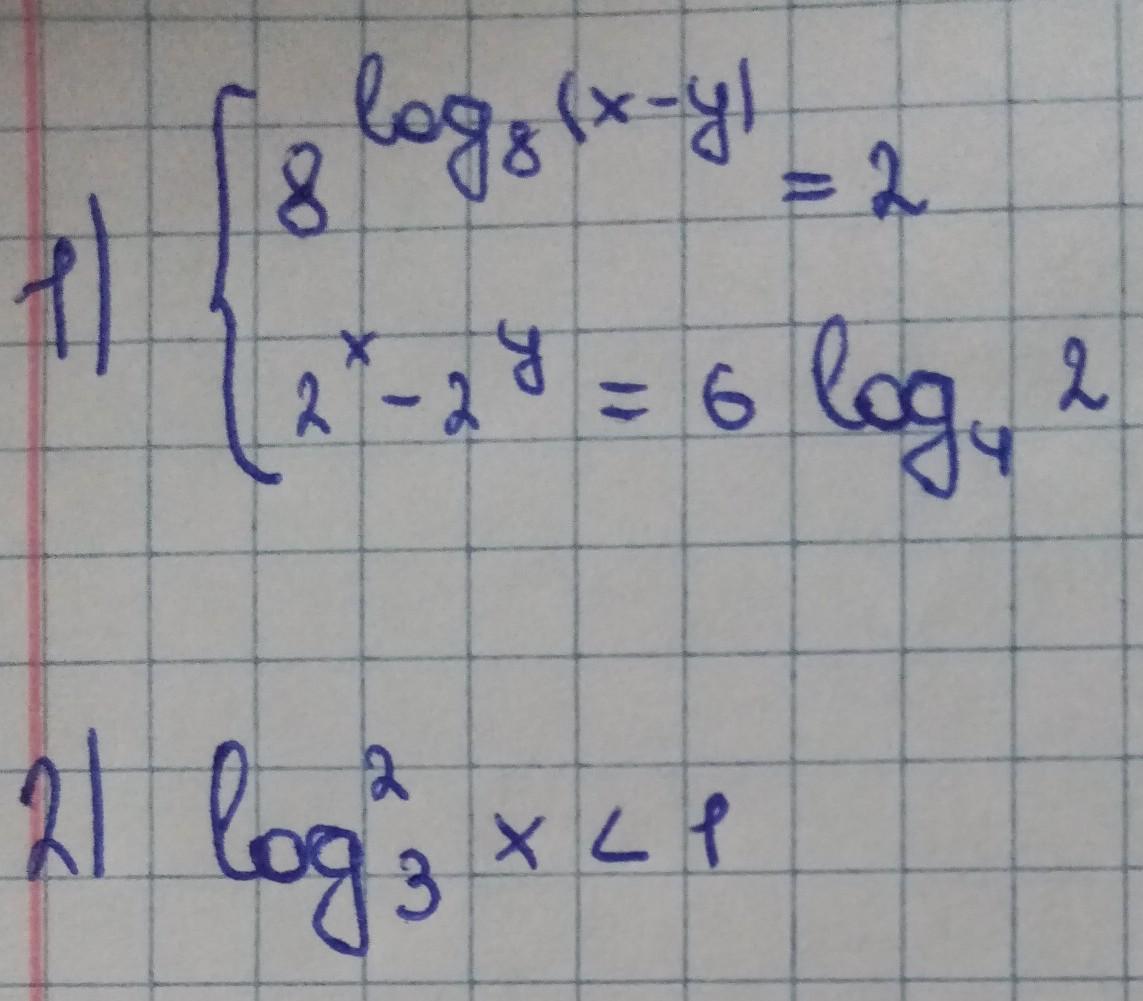 1) { 8^{log_8(x-y)} = 2
2^x - 2^y = 6 log_4 2
2) log_3^2 x < 1